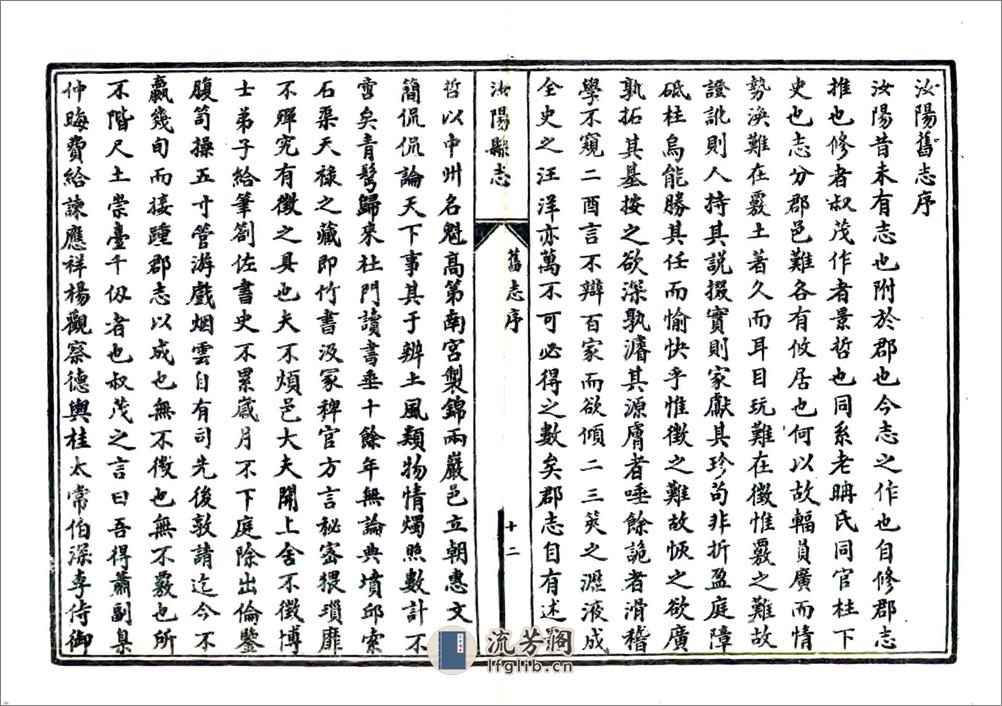 汝陽舊志序
汝陽昔未有志也附於郡也今志之作也自修郡志
推也修者叔茂作者景哲也同系老聃氏同官柱下
史也志分郡邑難各有攸居也何以故輻員廣而情
勢渙難在覈土著久而耳目玩難在徵惟覈之難故
證訛則人持其說掇實則家獻其珍苟非折盈庭障
砥柱烏能勝其任而愉快乎惟徵之難故恢之欲廣
孰拓其基按之欲深孰濬其源膚者唾餘詭者滑稽
學不窺二酉言不辯百家而欲傾二三筴之瀝液成
全史之汪洋亦萬不可必得之數矣郡志自有述
汝陽縣志
舊志序
十二
哲以中州名魁高第南宮製錦兩巖邑立朝惠文
簡侃侃論天下事其于辨土風類物情燭照數計不
啻矣青髩歸來杜門讀書垂十餘年無論典墳邱索
石渠天祿之藏即竹書汲冢稗官方言秘宻猥瑣靡
不殫究有徵之具也夫不煩邑大夫開上舍不徵博
士弟子給筆劄佐書史不累歲月不下庭除出倫鑒
腹笥操五寸管游戲烟雲自有司先後敦請迄今不
贏幾旬而接踵郡志以成也無不徵也無不覈也所
不階尺土崇臺千仭者也叔茂之言曰吾得蕭副臬
仲晦費給諫應祥楊觀察德輿桂太常伯深李侍御
流芳阁
lfglib.cn